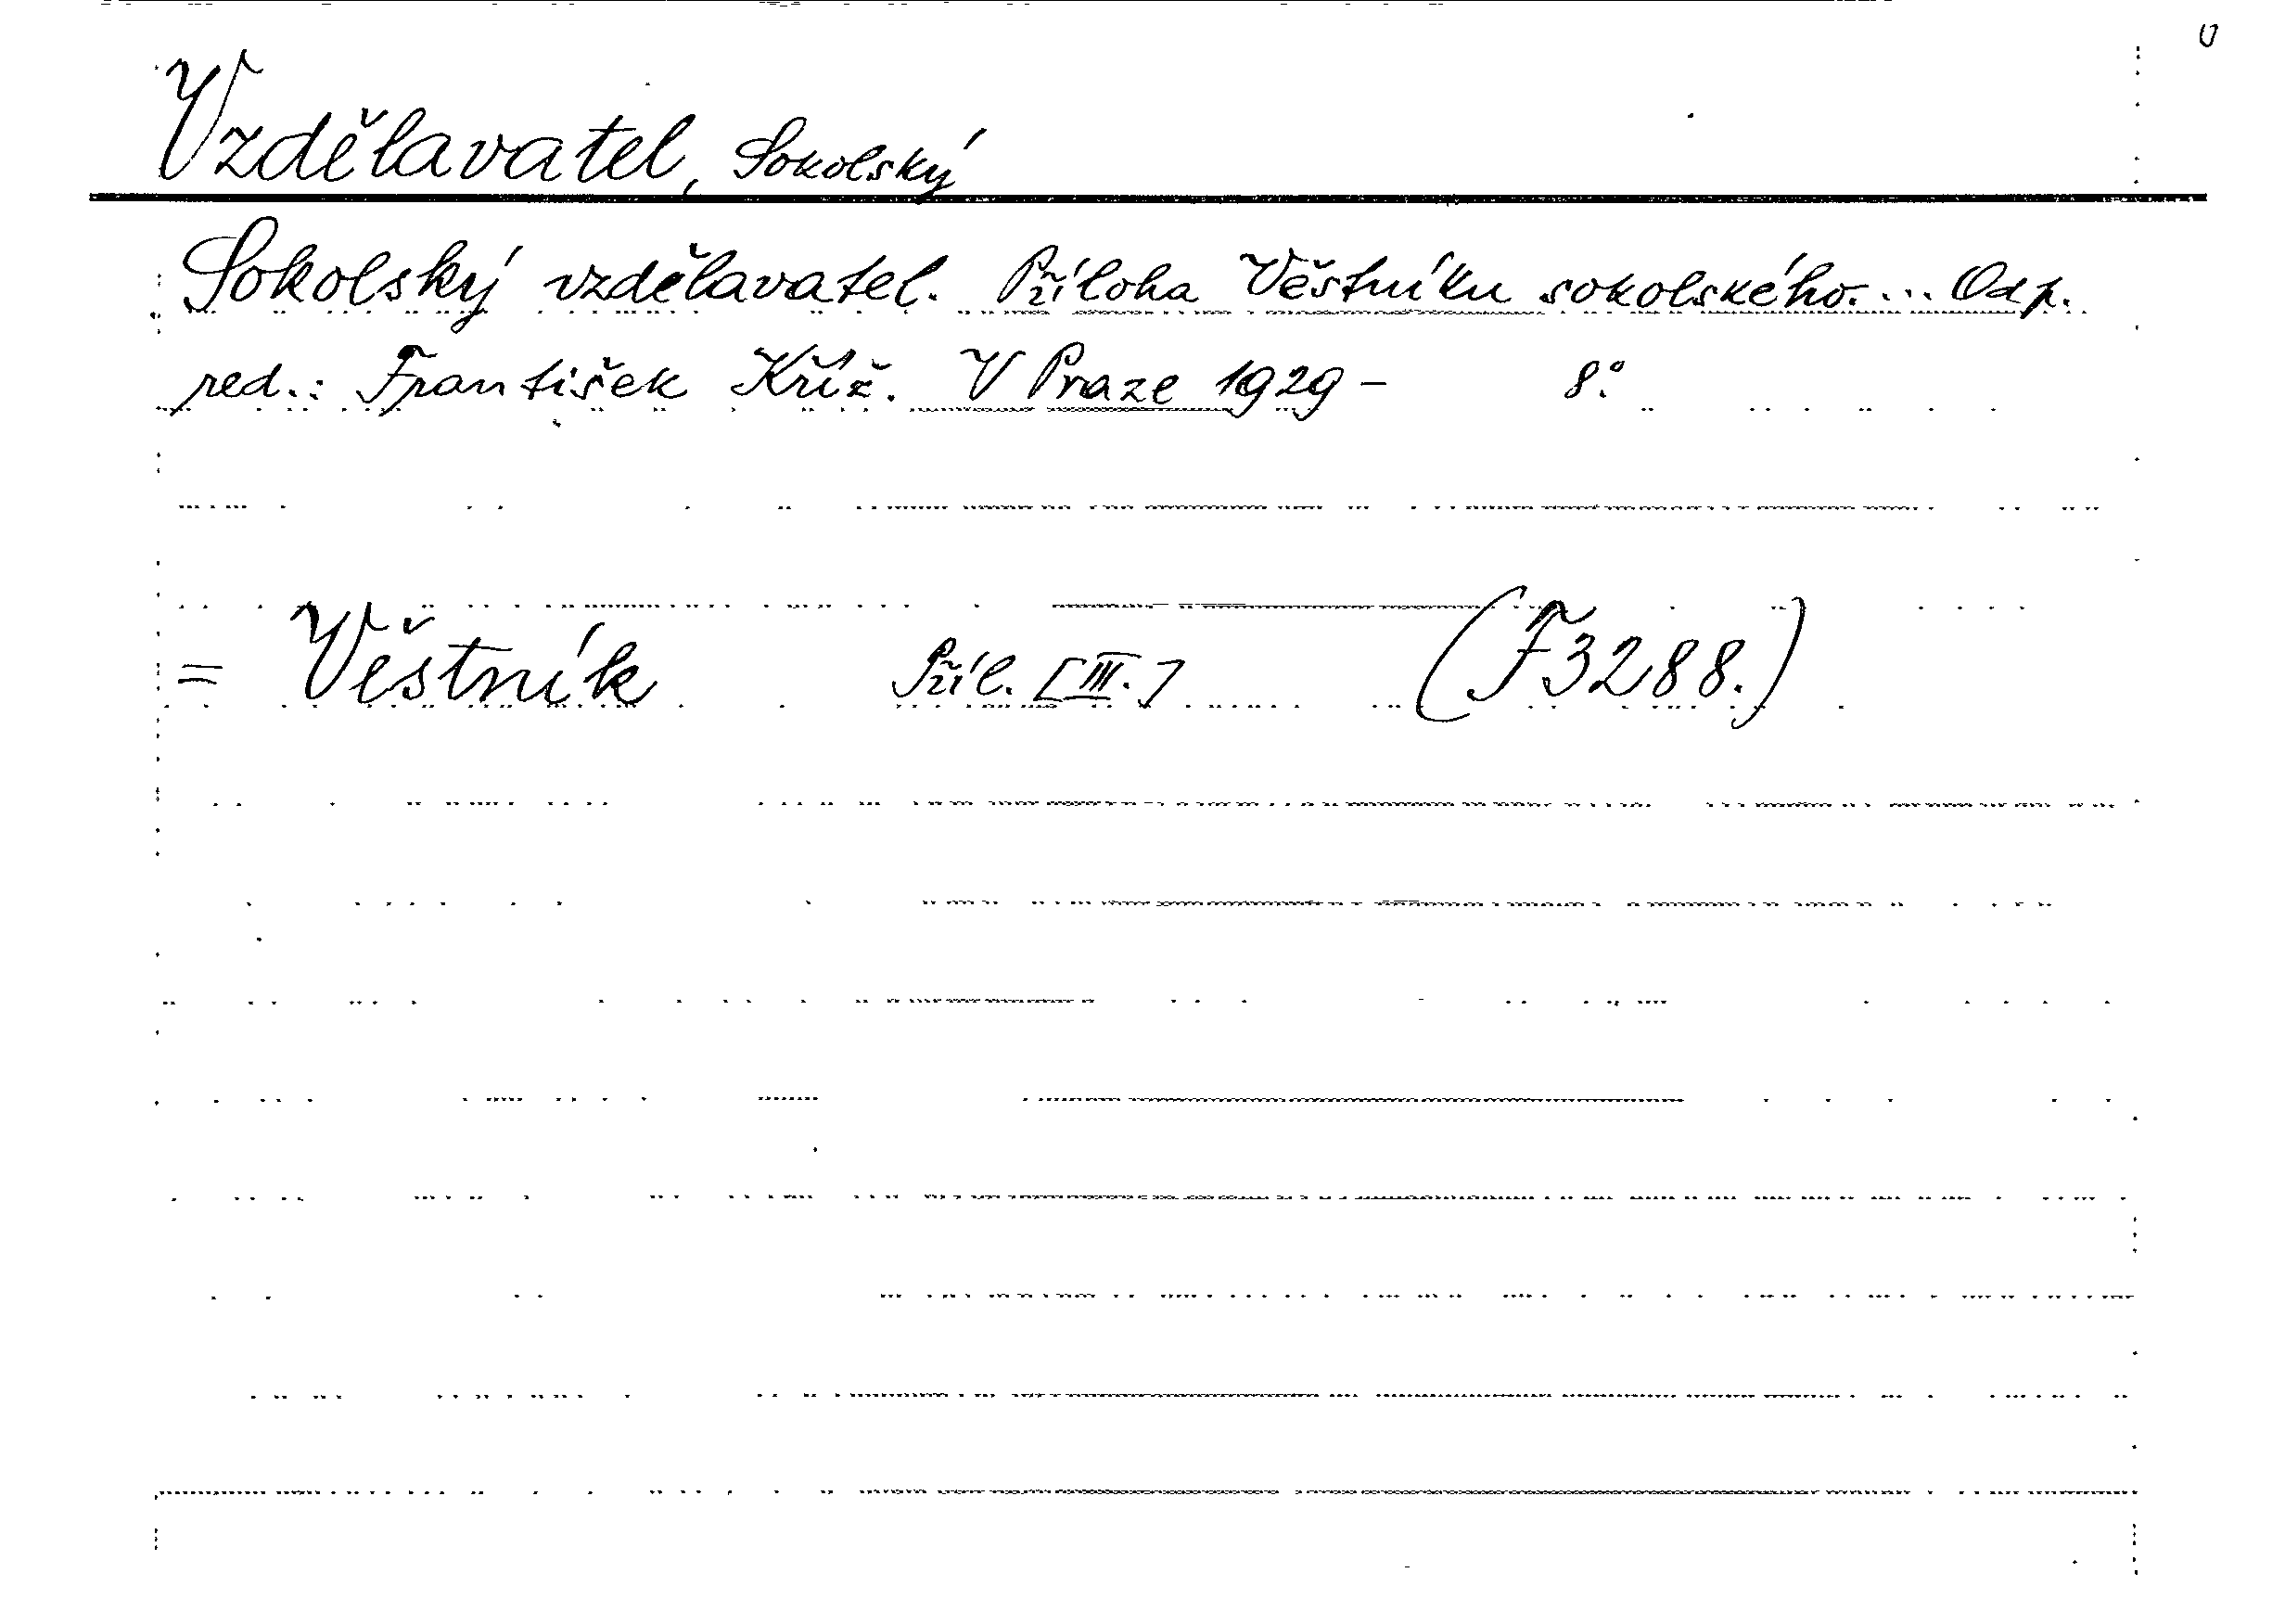 Vzdělavatel, Sokolský
Sokolský vzdělavatel. Příloha Věstníku sokolského. ... Odp.
red.: František Kříž. V Praze 1929 - 8°.
= Věstník Příl. [III.] (F3288.)